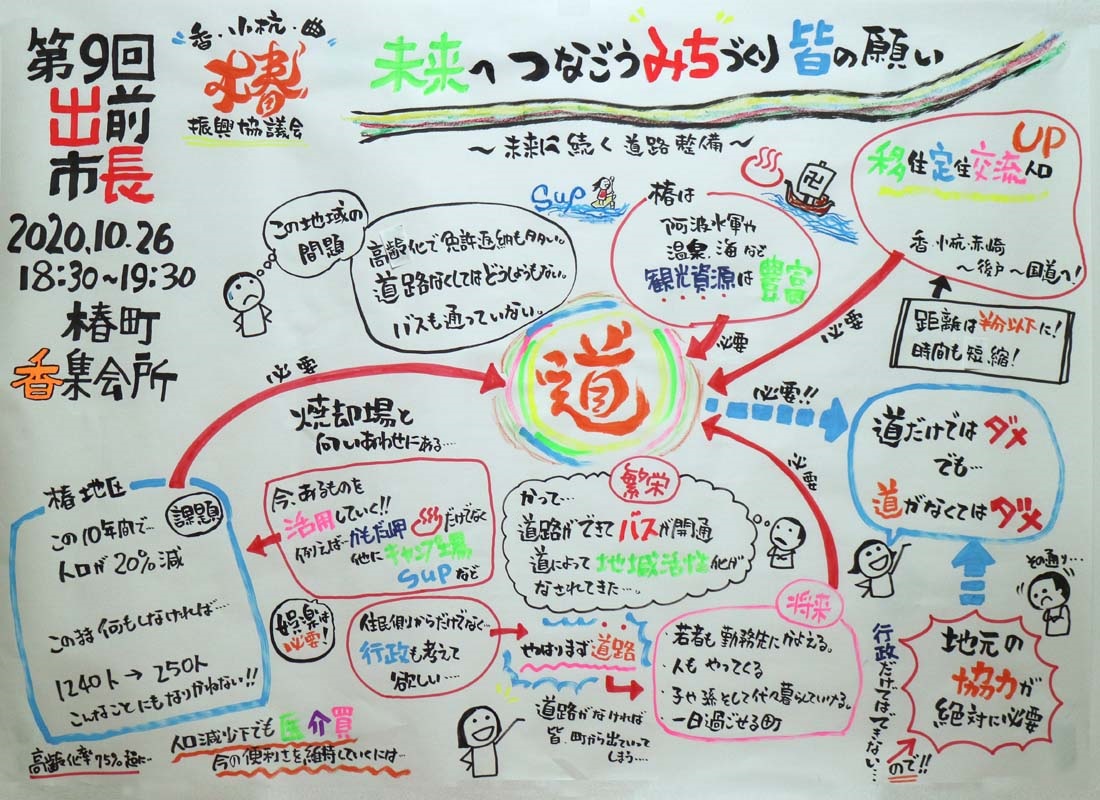 第9回
出前
市長
2020.10.26
18:30~19:30
椿町
香集会所
香・小杭・曲
椿
振興協議会
未来へつなごうみちづくり皆の願い
~未来に続く道路整備~
この地域の
問題
高齢化で免許返納も多い。
道路なくしてはどうしようもない。
バスも通っていない。
SUP
椿は
阿波水軍や
温泉、海など
観光資源は豊富
卍
UP
移住定住交流人口
香、小杭、赤崎
~後戸~国道へ!
距離は半分以下に!
時間も短縮!
必要
必要
必要
道
必要!!
必要
道だけではダメ
でも…
道がなくてはダメ
その通り…
地元の
協力が
絶対に必要
行政だけではできない…
ので!!
焼却場と
向いあわせにある…
椿地区
課題
この10年間で…
人口が20%減
このまま何もしなければ…
1240人→250人
こんなことにもなりかねない!!
高齢化率75%超に…
人口減少下でも医介買
今の便利さを維持していくには…
今、あるものを
活用していく!!
例えば…かもだ岬♨だけでなく
他にキャンプ場,
SUPなど
娯楽は
必要!
繁栄
かつて…
道路ができてバスが開通
道によって地域活性化が
なされてきた…。
住民側からだけでなく…
行政も考えて
欲しい…
やっぱりまず道路
道路がなければ
皆、町から出ていって
しまう…
将来
・若者も勤務先にかよえる。
・人もやってくる
・子や孫そして代々暮らしていける。
・一日過ごせる町